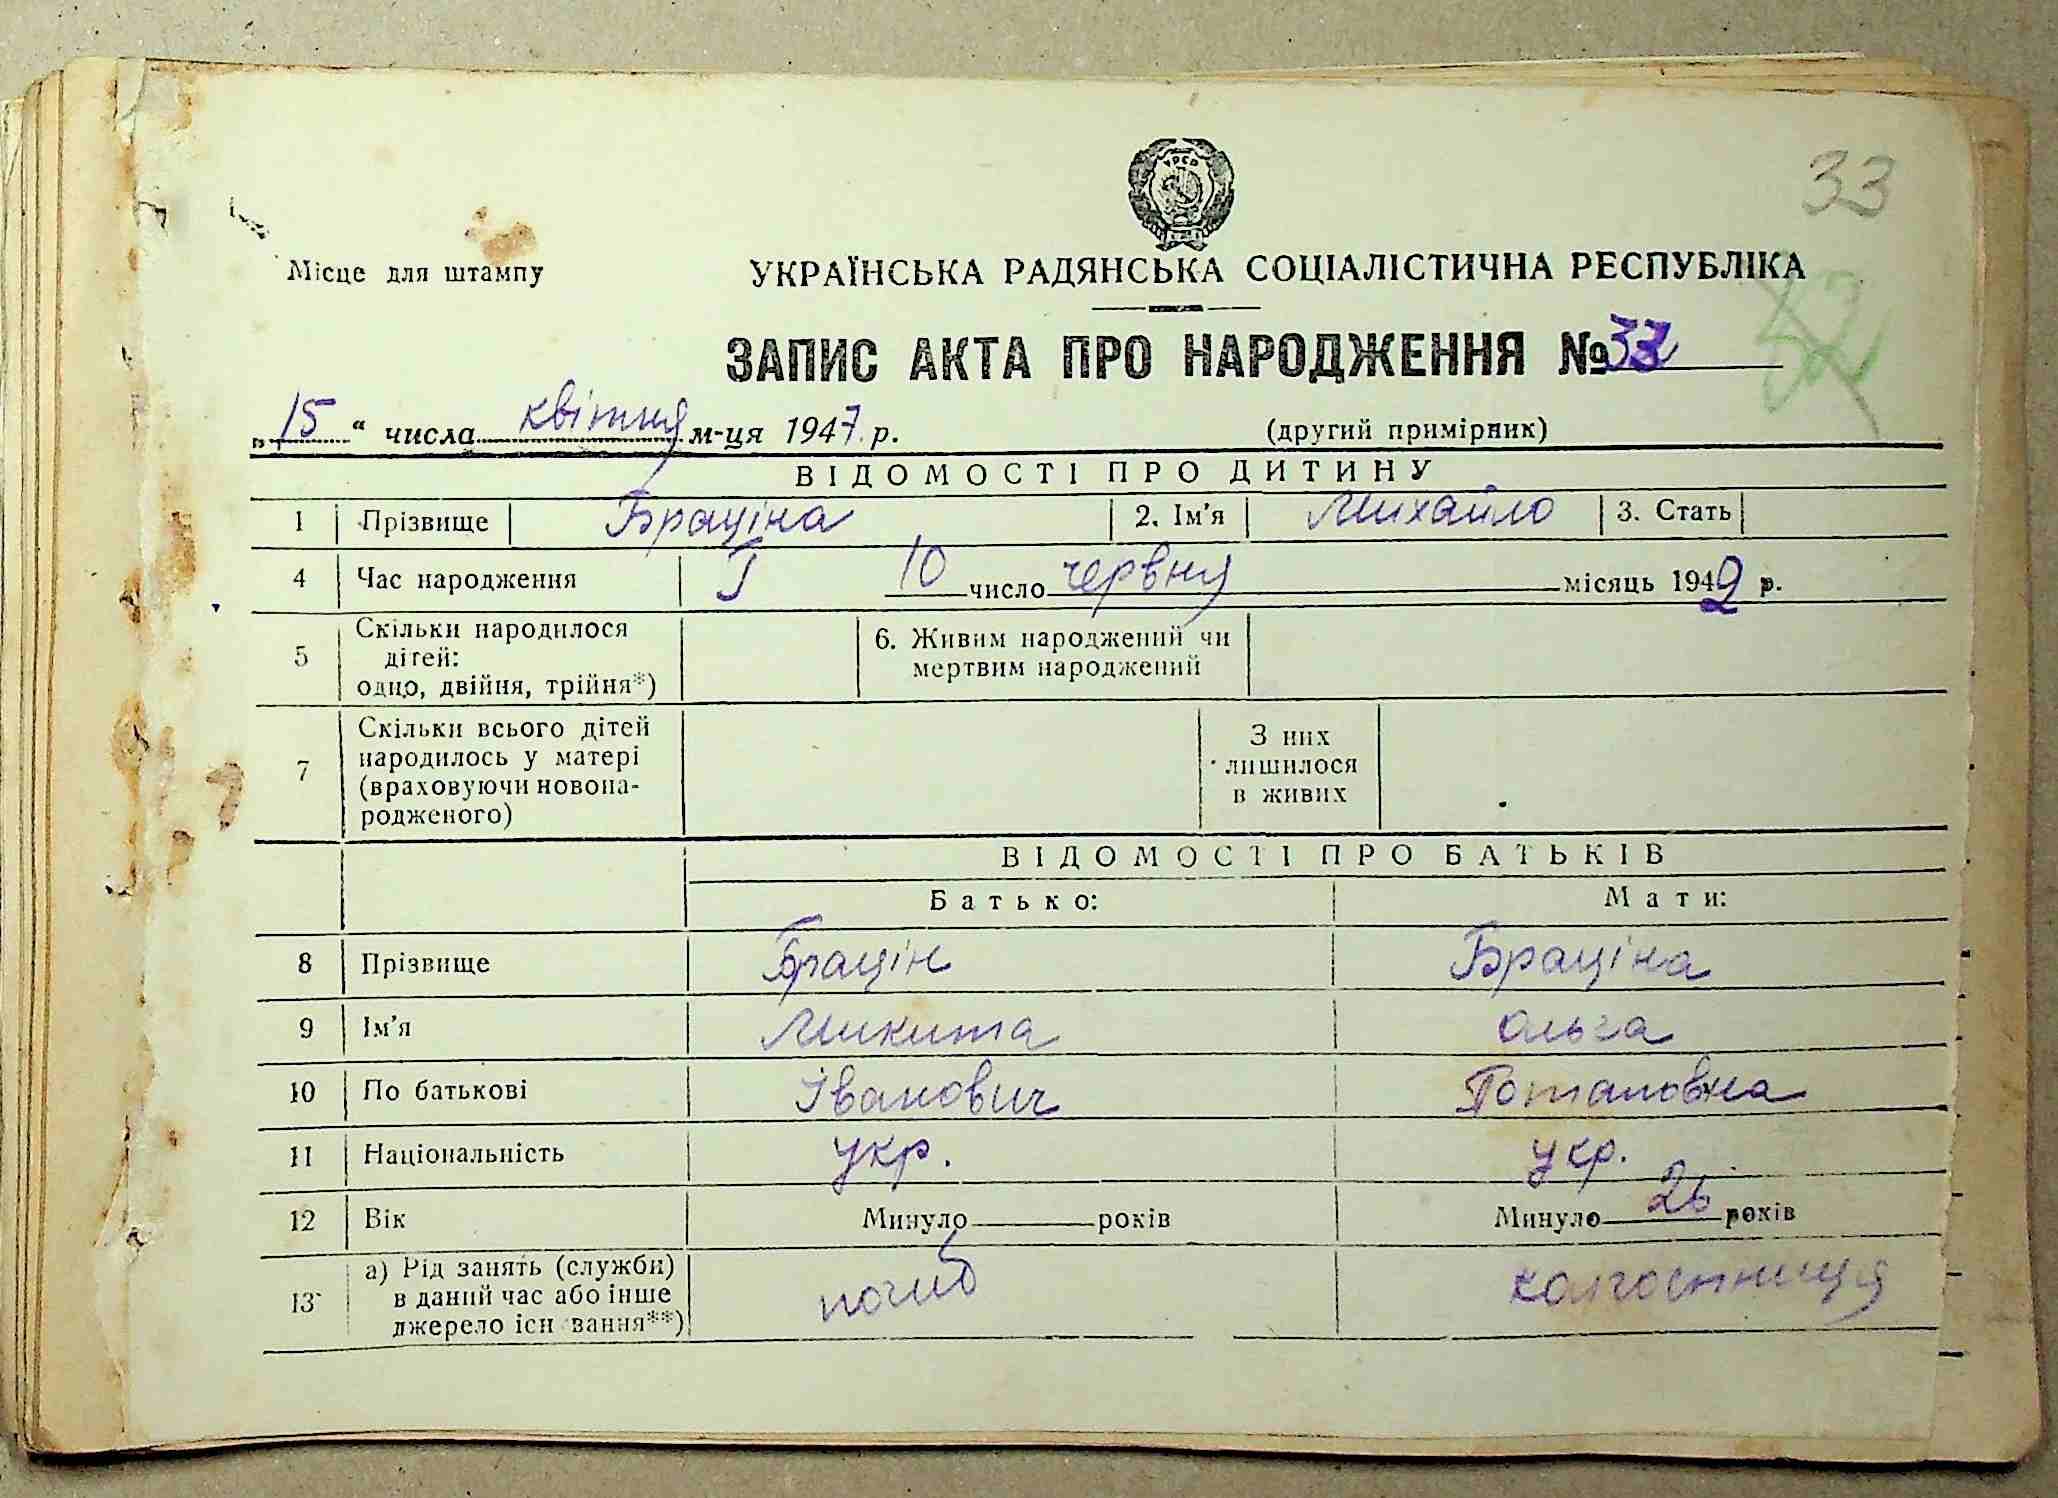 33
УРСР
Місце для штампу
УКРАЇНСЬКА РАДЯНСЬКА СОЦІАЛІСТИЧНА РЕСПУБЛІКА
52
ЗАПИС АКТА ПРО НАРОДЖЕННЯ № 33
„15“ числа квітня м-ця 1947 р.
(другий примірник)
ВІДОМОСТІ ПРО ДИТИНУ
1 Прізвище Браціна 2. Ім'я Михайло 3. Стать
4 Час народження 10 число червня місяць 1942 р.
5 Скільки народилося дітей: одно, двійня, трійня*)
6. Живим народжений чи мертвим народжений
7 Скільки всього дітей народилось у матері (враховуючи новонародженого)
З них лишилося в живих
ВІДОМОСТІ ПРО БАТЬКІВ
Батько: Мати:
8 Прізвище Брацін Браціна
9 Ім'я Микита Ольга
10 По батькові Іванович Потаповна
11 Національність укр. укр.
12 Вік Минуло років Минуло 26 років
13 а) Рід занять (служби) в даний час або інше джерело існування**) погиб колгоспниця